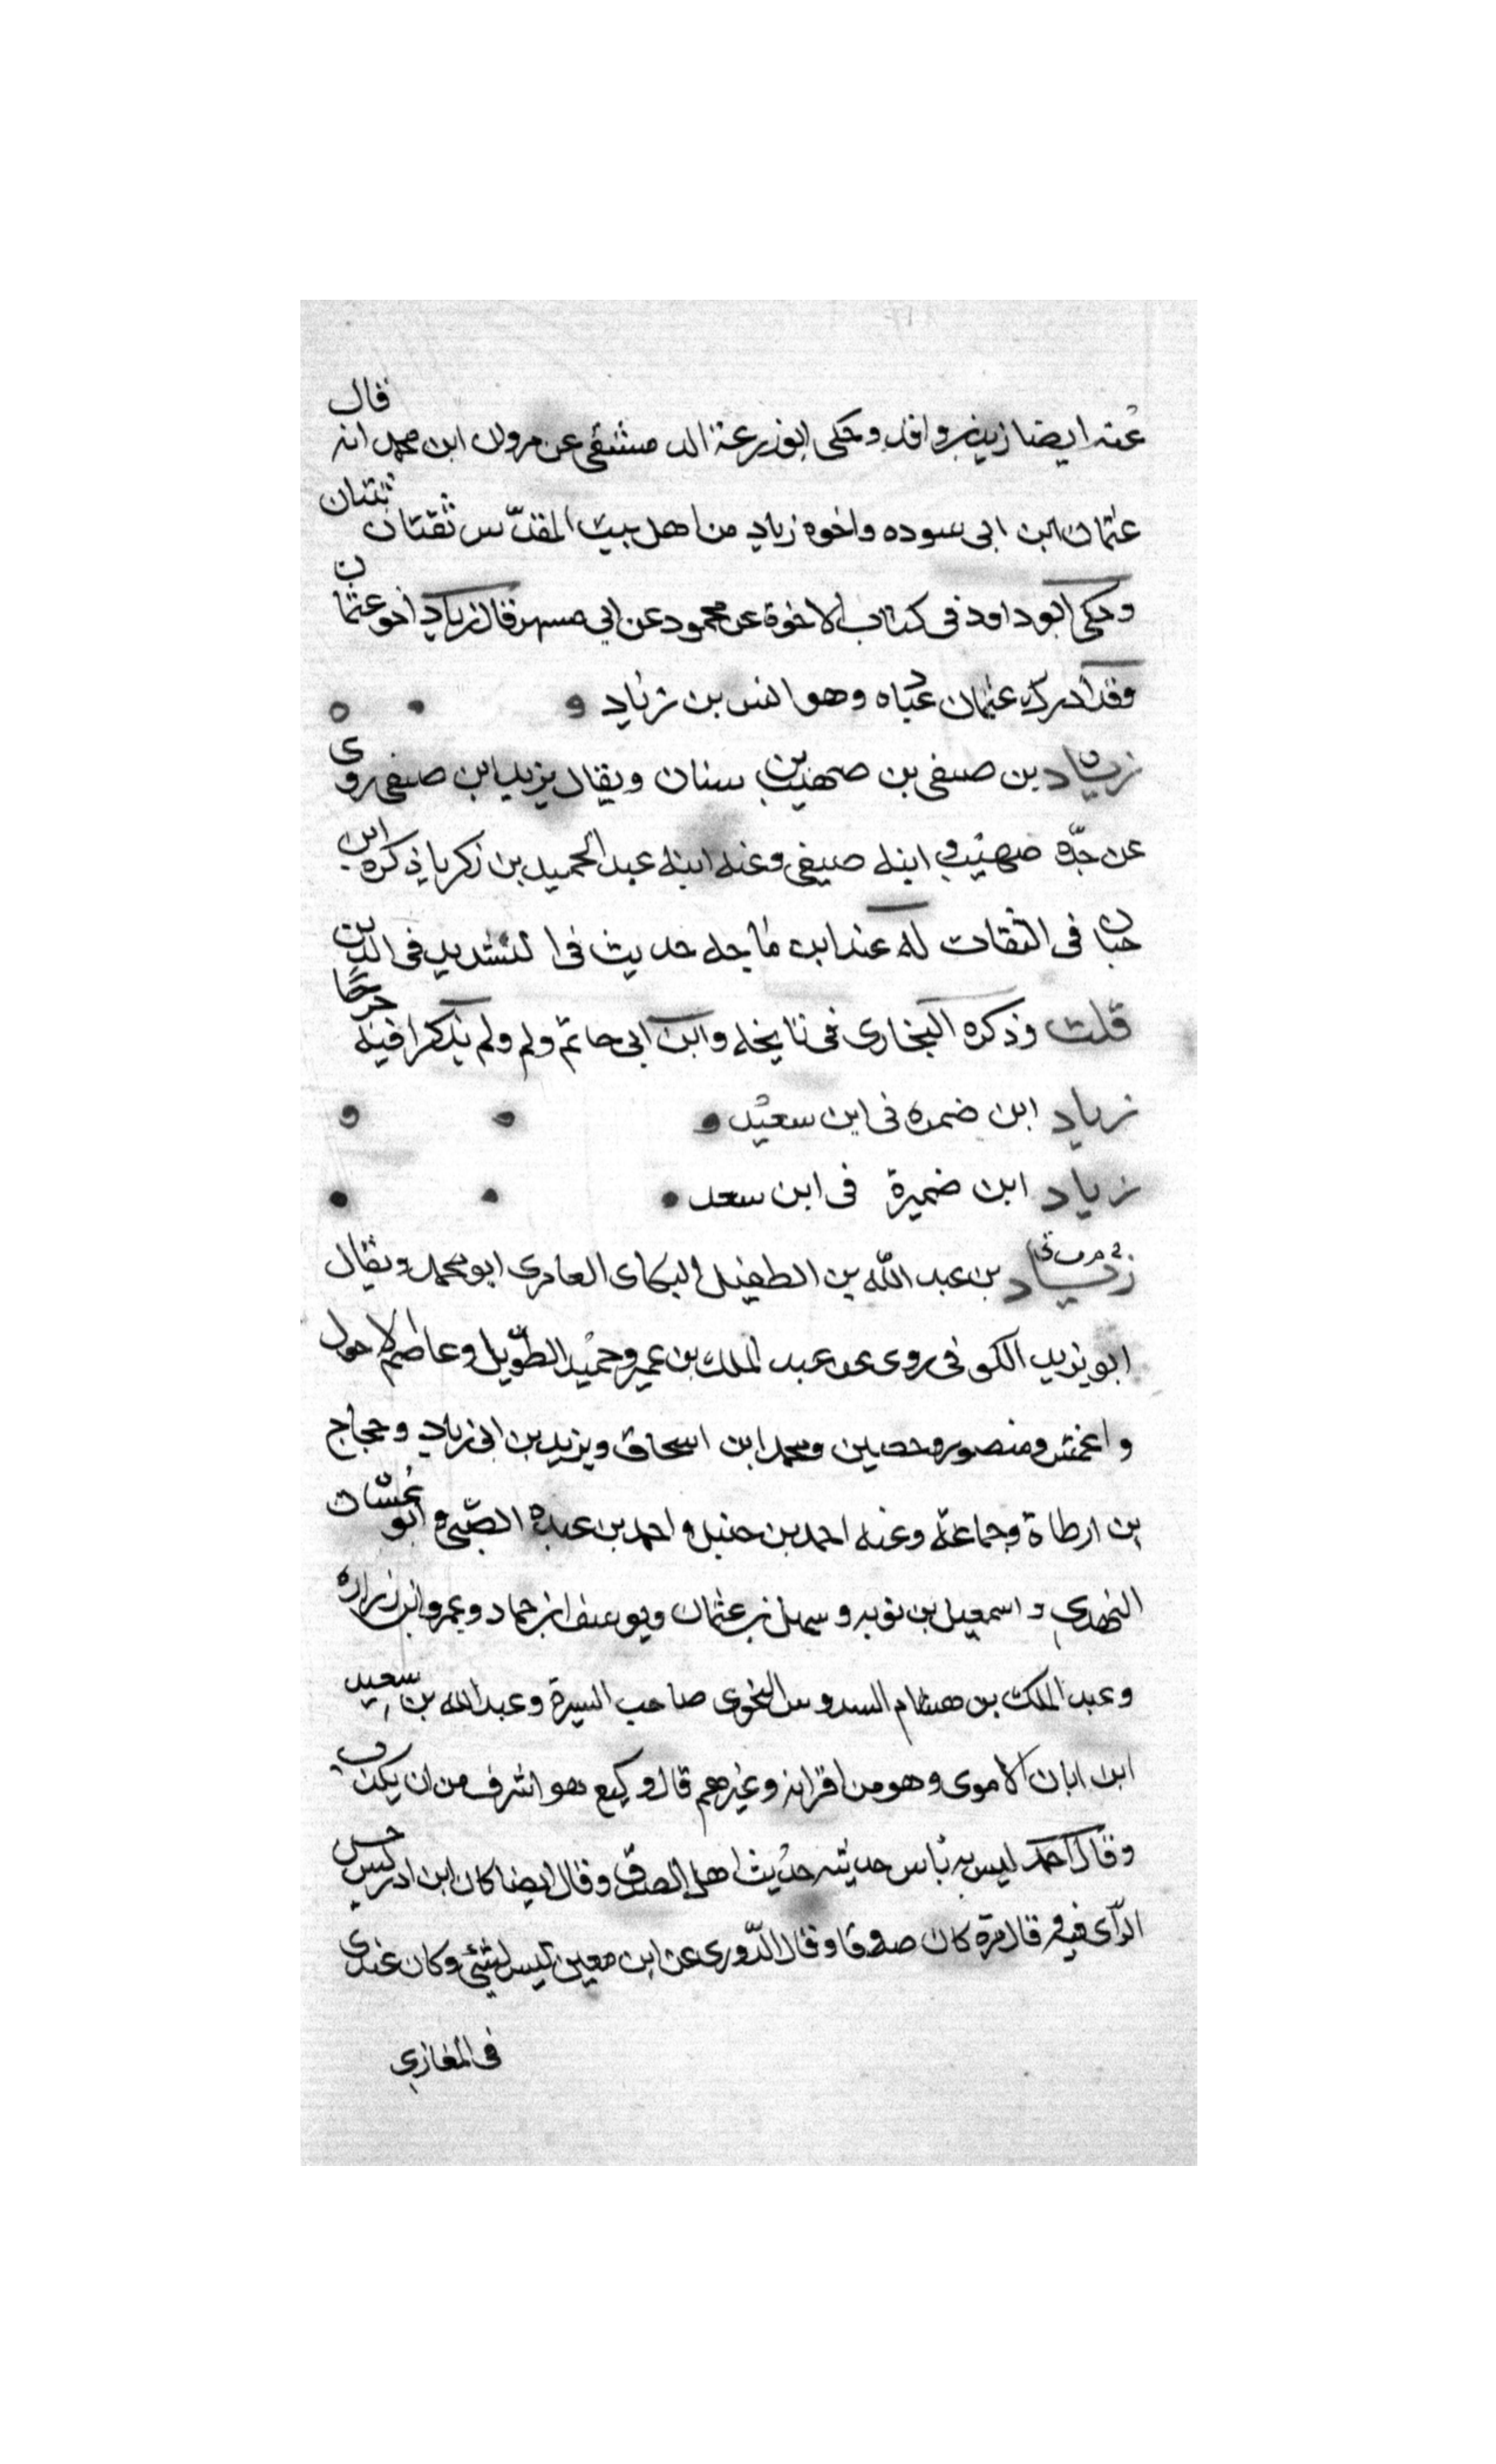 عنه ايضا زيد بن واقد وحكى ابو زرعة الدمشقى عن مروان ابن محمد انه قال
عثمان ابن ابى سوده واخوه زياد من اهل بيت المقدّس ثقتان ثبتان
وحكى ابو داود فى كتاب الاخوة عن محمود عن ابي مسهر قال زياد اخو عثمان
وقد ادرك عثمان عباده وهو اسن من زياد
زياد بن صيفى بن صهيب بن سنان ويقال يزيد ابن صيفى روى
عن جدّه صهيب و ابيه صيفي وعنه ابنه عبد الحميد بن زكريا ذكره ابن
حبان فى الثقات له عند ابن ماجه حديث فى التشديد فى الدين
قلت وذكره البخارى فى تايخه وابن ابى حاتم ولم ولم يذكرا فيه جرحا
زياد ابن ضمره فى ابن سعيد
زياد ابن ضميرة فى ابن سعد
زياد بن عبد الله بن الطفيل البكاى العامرى ابو محمد ويقال
ابو يزيد الكوفى روى عن عبد الملك بن عمير وحميد الطّويل وعاصم الاحول
واعمش ومنصور وحصين ومحمد ابن اسحاق ويزيد بن ابى زياد وحجاج
بن ارطاة وجماعة وعنه احمد بن حنبل واحمد بن عبده الضّبى وابو غسّان
النهدي واسمعيل بن توبه وسهل بن عثمان ويوسف ابن حماد وعمرو ابن زراره
وعبد الملك بن هشام السدوسى النحوى صاحب السيرة وعبد الله بن سعيد
ابن ابان الاموى وهو من اقرانه وغيرهم قال وكيع هو اشرف من ان يكذب
وقال احمد ليس به باس حديثه حديث اهل الصدق وقال ايضا كان ابن ادريس حسن
الرّاى فيه وقال مرة كان صدوقا وقال الدّورى عن ابن معين ليس بشيئ وكان عندى
فى المغازي